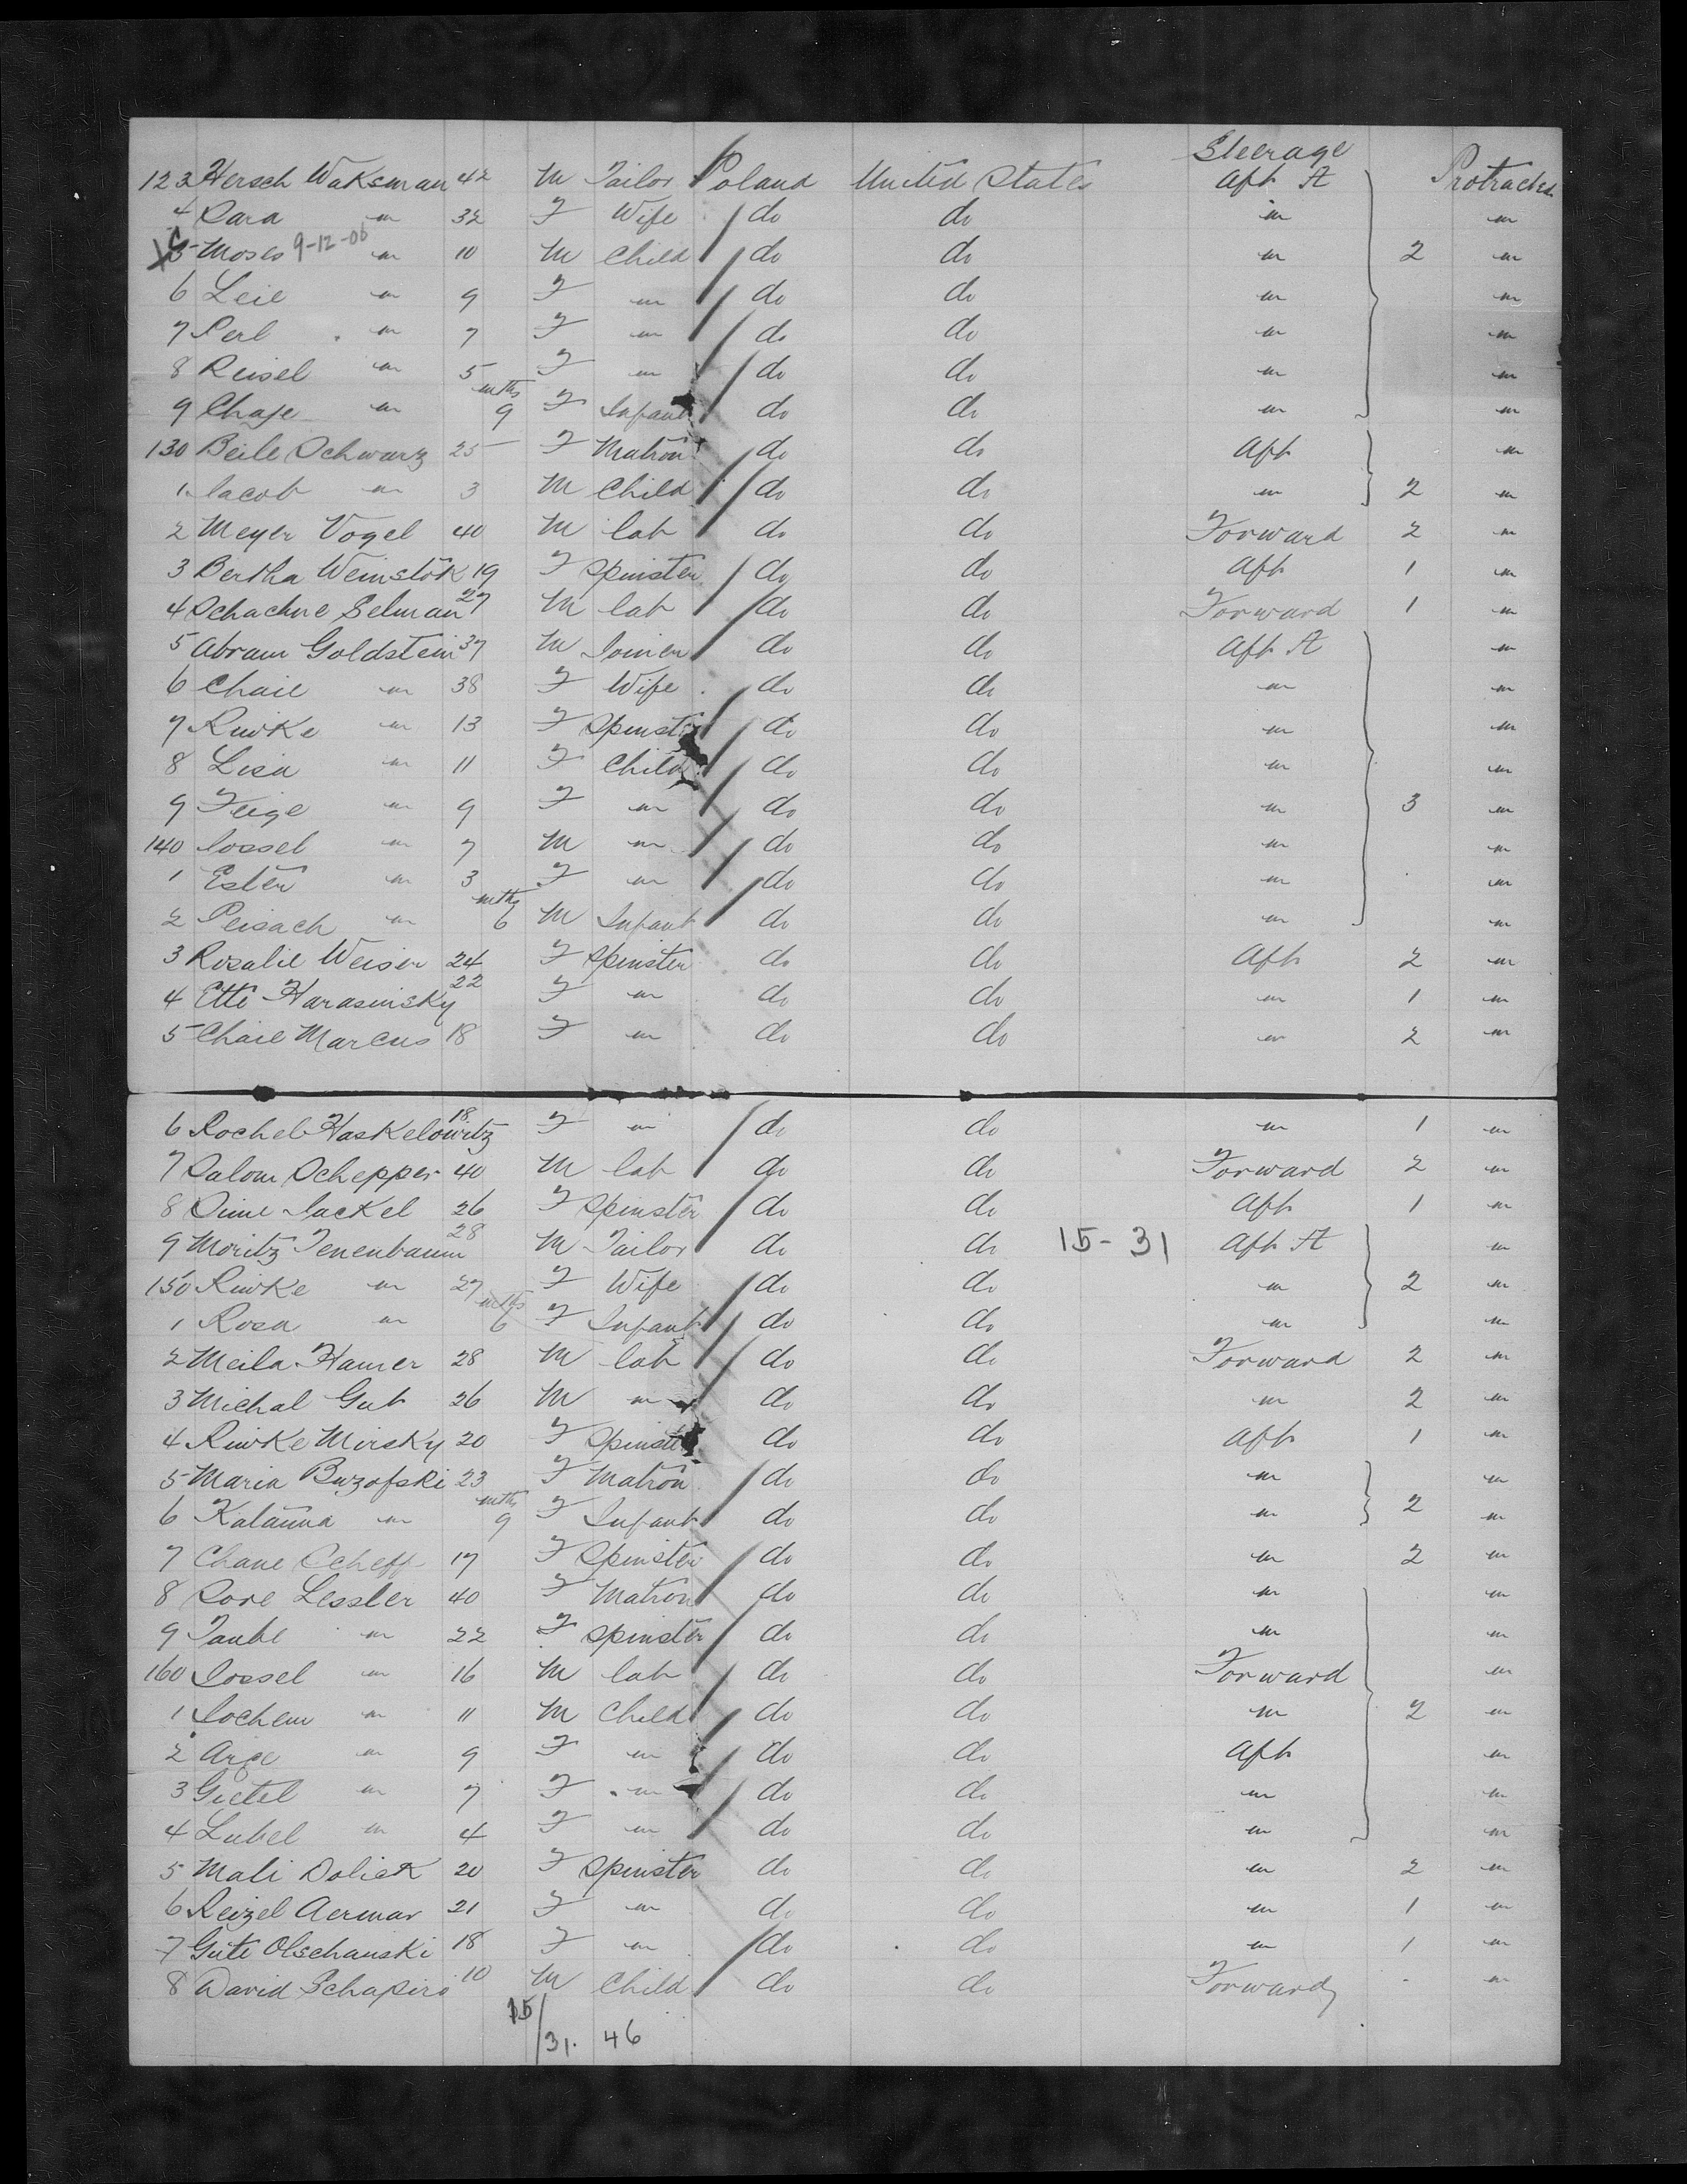 Steerage
123 Hersch Waksman 42 M Tailor Poland United States Aft A Protracted
4 Sara " 32 F Wife do do " "
5 Moses 9-12-06 " 10 M Child do do " 2 "
6 Leie " 9 F " do do " "
7 Perl " 7 F " do do " "
8 Reisel " 5 F " do do " "
9 Chaje " mths 9 F Infant do do " "
130 Beile Schwarz 25 F Matron do do Aft "
1 Jacob " 3 M Child do do " 2 "
2 Meyer Vogel 40 M lab do do Forward 2 "
3 Bertha Weinstok 19 F Spinster do do Aft 1 "
4 Schachne Selman 27 M lab do do Forward 1 "
5 Abram Goldstein 37 M Joiner do do Aft A "
6 Chaie " 38 F Wife do do " "
7 Riwke " 13 F Spinster do do " "
8 Lisa " 11 F Child do do " "
9 Feige " 9 F " do do " 3 "
140 Jossel " 7 M " do do " "
1 Ester " 3 F " do do " "
2 Peisach " mths 6 M Infant do do " "
3 Rosalie Weiser 24 F Spinster do do Aft 2 "
4 Etti Harasinsky 22 F " do do " 1 "
5 Chaie Marcus 18 F " do do " 2 "
6 Rochel Haskelowitz 18 F " do do " 1 "
7 Salom Schepper 40 M lab do do Forward 2 "
8 Sime Jackel 26 F Spinster do do Aft 1 "
9 Moritz Tenenbaum 28 M Tailor do do 15-31 Aft A "
150 Riwke " 27 F Wife do do " 2 "
1 Rosa " mths 6 F Infant do do " "
2 Meila Hamer 28 M lab do do Forward 2 "
3 Michal Gut 26 M " do do " 2 "
4 Riwke Mirsky 20 F Spinster do do Aft 1 "
5 Maria Buzofski 23 F Matron do do " "
6 Katarina " mths 9 F Infant do do " 2 "
7 Chane Scheff 17 F Spinster do do " 2 "
8 Sore Lessler 40 F Matron do do " "
9 Taube " 22 F Spinster do do " "
160 Jossel " 16 M lab do do Forward "
1 Jochem " 11 M Child do do " 2 "
2 " 9 F " do do Aft "
3 Gietel " 7 F " do do " "
4 Lubel " 4 F " do do " "
5 Mali Dolick 20 F Spinster do do " 2 "
6 Reizel Aermar 21 F " do do " 1 "
7 Gute Olschanski 18 F " do do " 1 "
8 David Schapiro 10 M Child do do Forward - "
15/31. 46